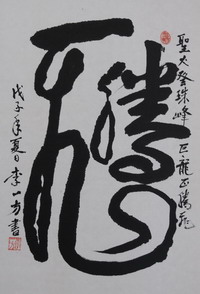 聖火登珠峰 巨龍正騰飛
騰飛
戊子年夏日李一方書